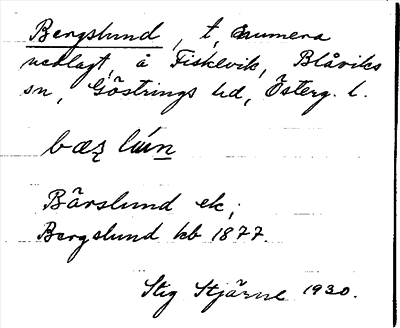 Bergslund, t, numera
nedlagt, å Fiskevik, Blåviks
sn, Göstrings hd, Österg. l.
bæʀ lún
Bärslund ek,
Bergslund kb 1877.
Stig Stjärne 1930.